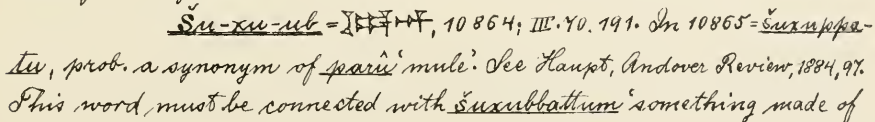 Šu-xu-ub = 𒋗𒆷, 10864; III. 70. 191. In 10865 = šuxuppa-
tu, prob. a synonym of parû 'mule'. See Haupt, Andover Review, 1884, 97.
This word must be connected with šuxubbattum 'something made of